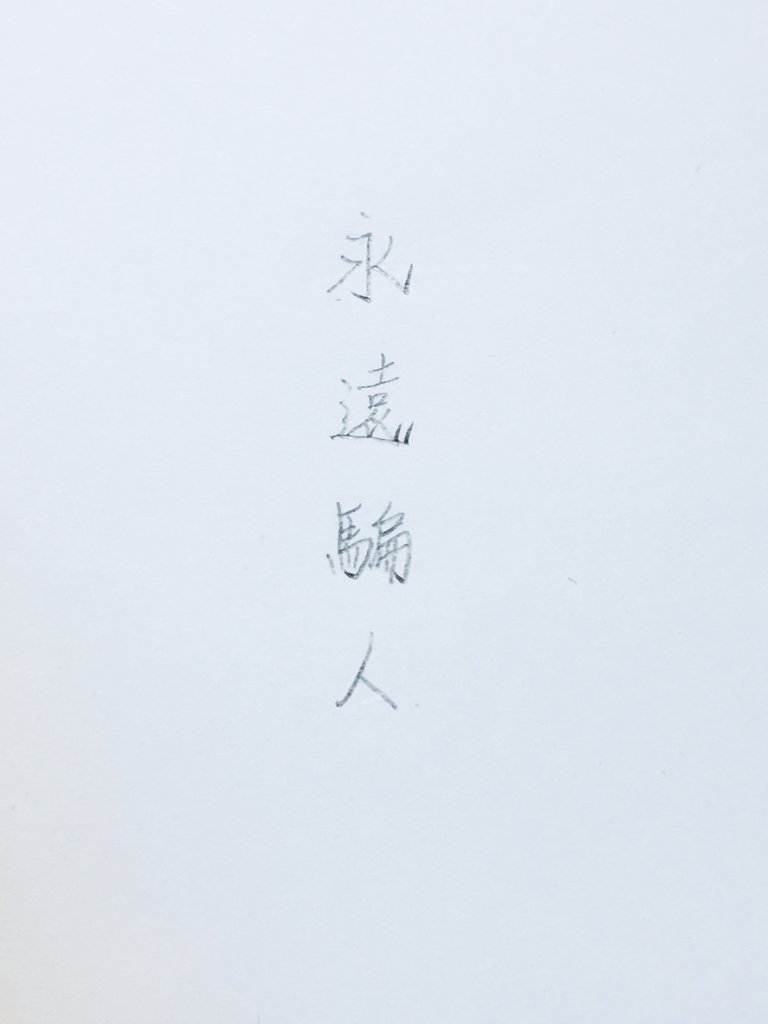 永遠騙人